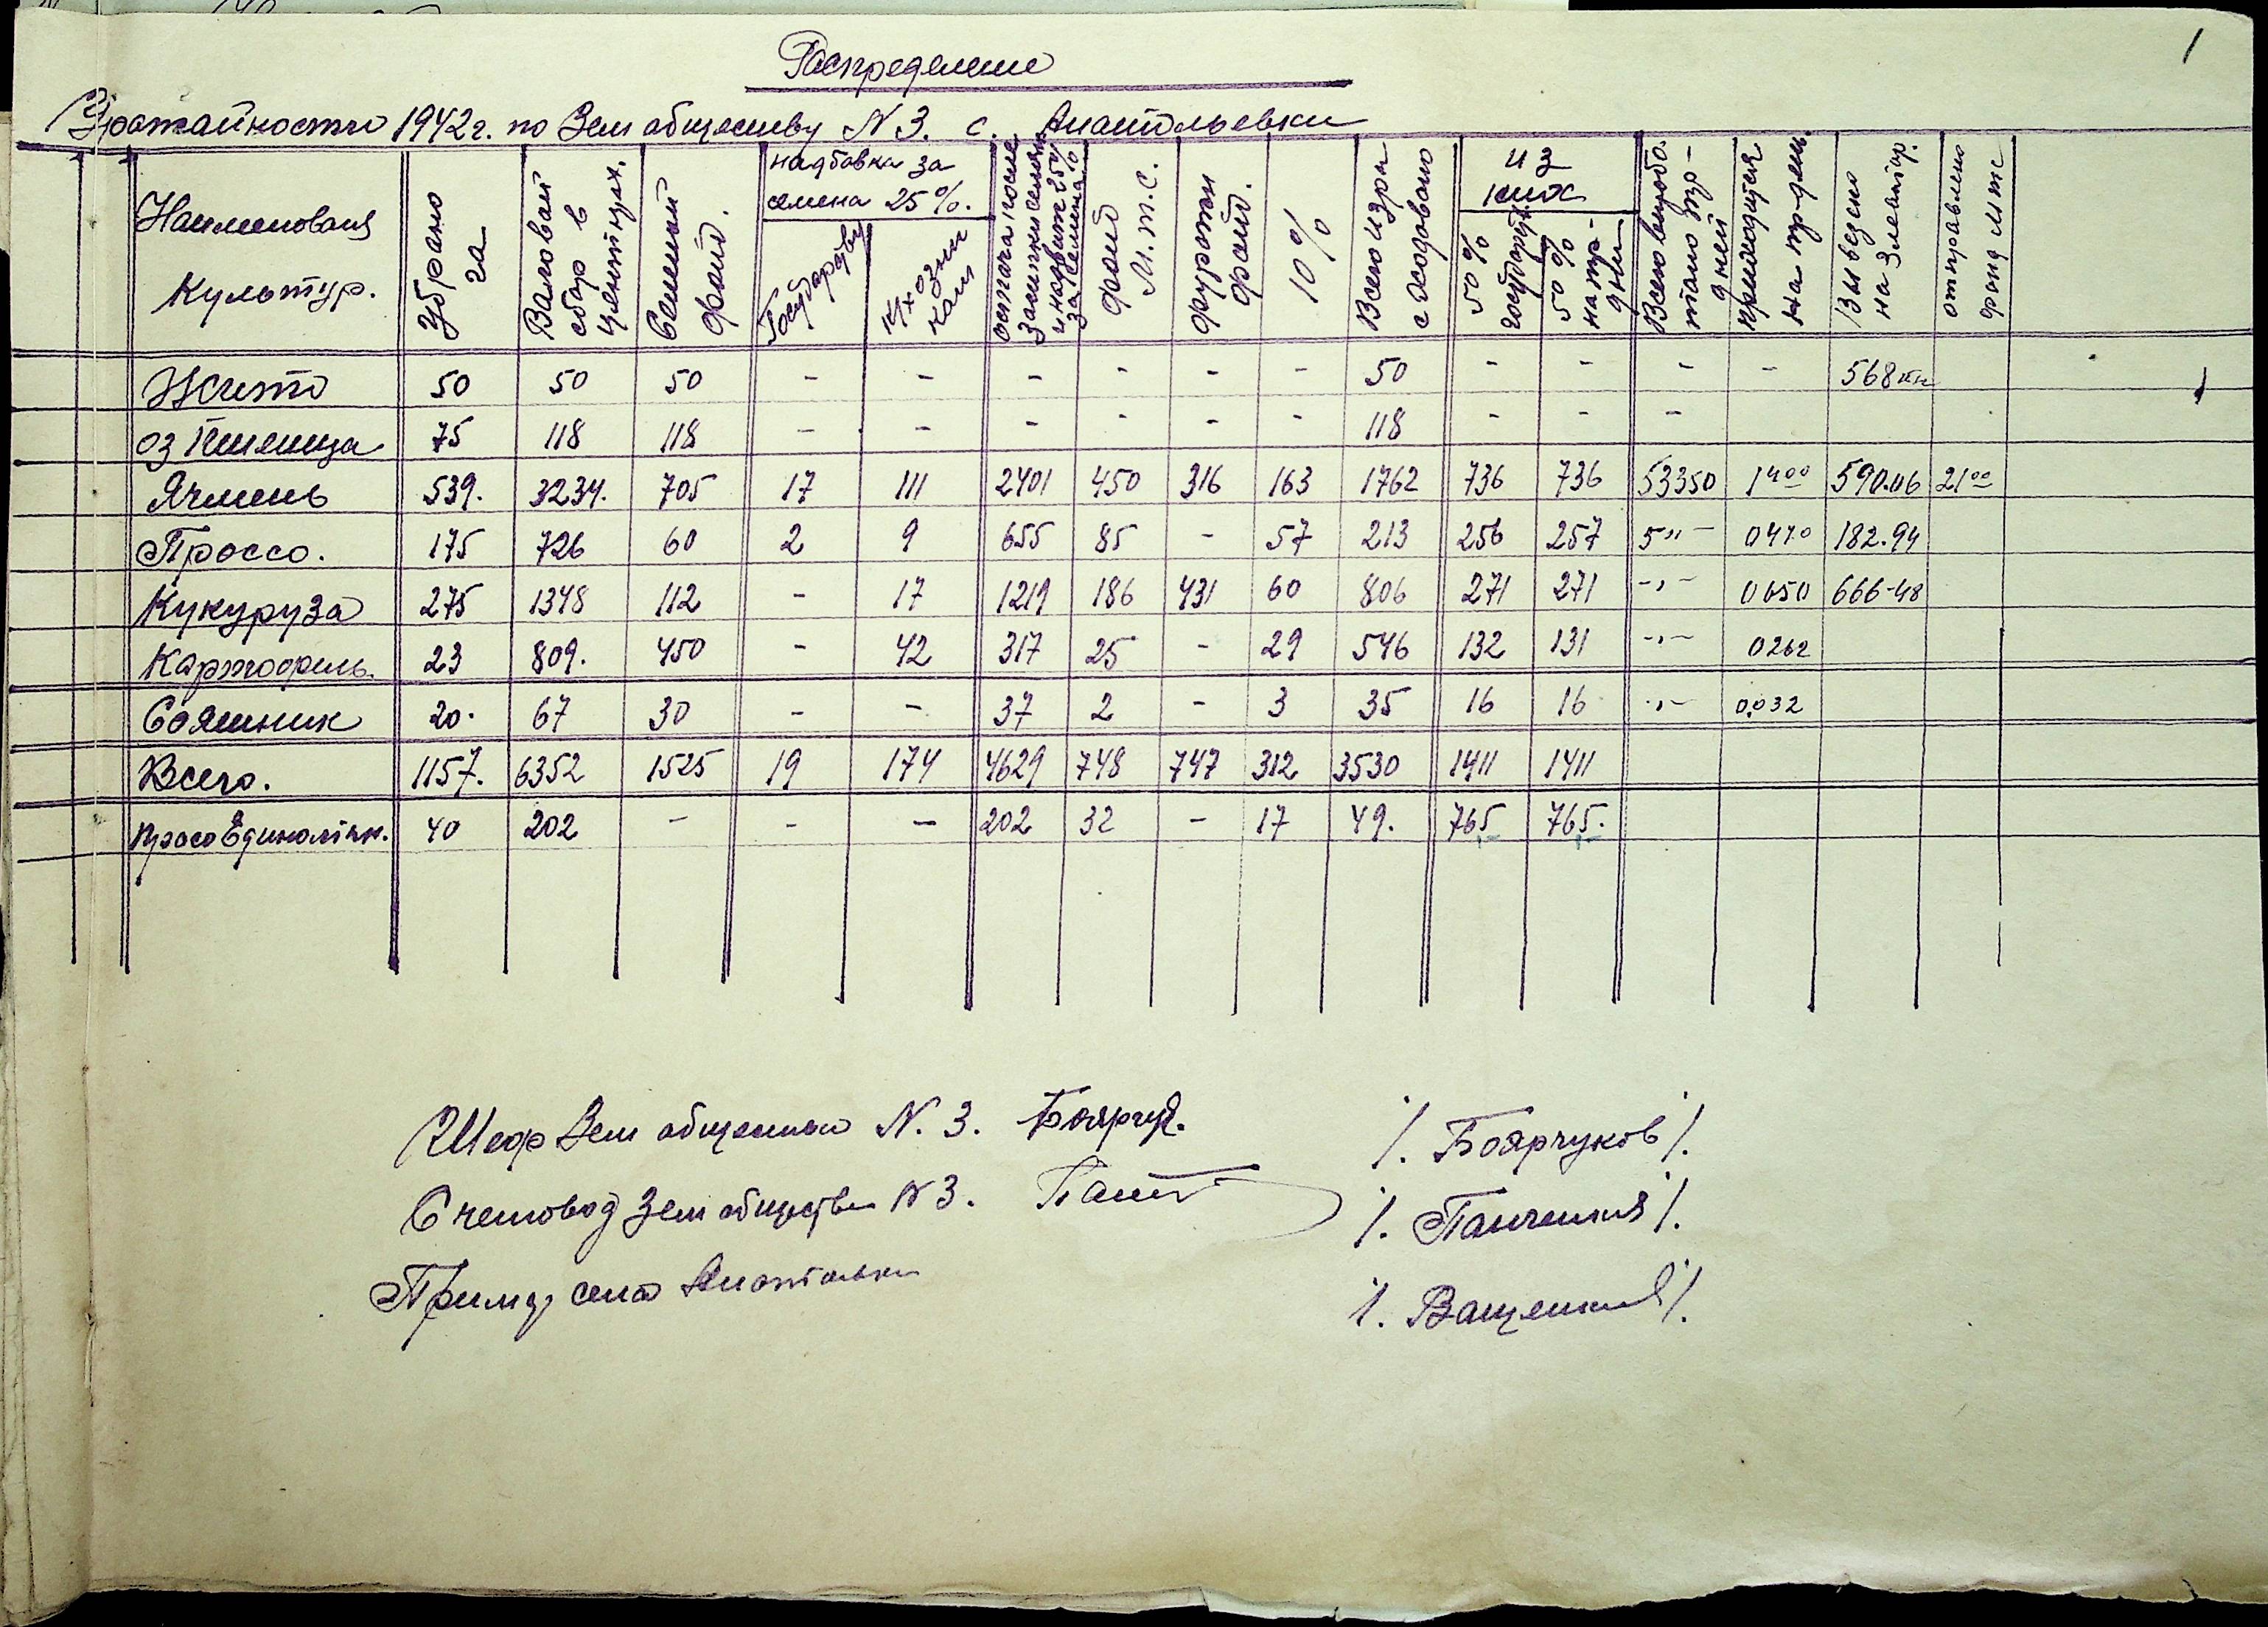 1
Распределение
Урожайности 1942г. по Зем обществу N 3. с. Анатольевки
Наименования Культур.
Убрано га
Валовый сбор в центнрах.
Семенной фонд.
надбавка за семена 25%.
Государству
остача после засыпки семян и надбавк 25% за семена
фонд М.т.с.
Фуражн фонд.
10%
Всего израсходовано
из них
50% государст
50% на тр-дни
Всего вырабо. тано тр-дней
приходится на тр-день
Вывезено на Элеватор.
отправлено фонд Мтс
Жито 50 50 50 - - - - - - 50 - - - - 568кг
оз Пшеница 75 118 118 - - - - - - 118 - - -
Ячмень 539. 3234. 705 17 111 2401 450 316 163 1762 736 736 53350 1400 590.06 2100
Проссо. 175 726 60 2 9 655 85 - 57 213 256 257 5"- 0470 182.94
Кукуруза 275 1348 112 - 17 1219 186 431 60 806 271 271 -"- 0650 666-48
Картофель. 23 809. 450 - 42 317 25 - 29 546 132 131 -"- 0262
Сояшник 20. 67 30 - - 37 2 - 3 35 16 16 -"- 0,032
Всего. 1157. 6352 1525 19 174 4629 748 747 312 3530 1411 1411
просо Единоличн. 40 202 - - - 202 32 - 17 49. 765 765.
Шеф Зем общества N. 3. Боярчук. /. Боярчуков /.
Счетовод Зем общества N 3. /. Панченко /.
Примар села Анатольевки /. Ващенко /.